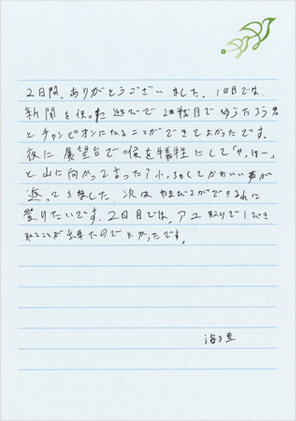 2日間、ありがとうございました。1日目では
新聞を使った遊びで2回戦目でゆうたろう君
とチャンピオンになることができてよかったです。
夜に展望台で喉を犠牲にして「やっほー」
と山に向かって言ったら小さくてかわいい声が
返ってきました。次はやまびこができる山に
登りたいです。2日目では、アユ取りで1ぴき
取ることが出来たのでよかったです。